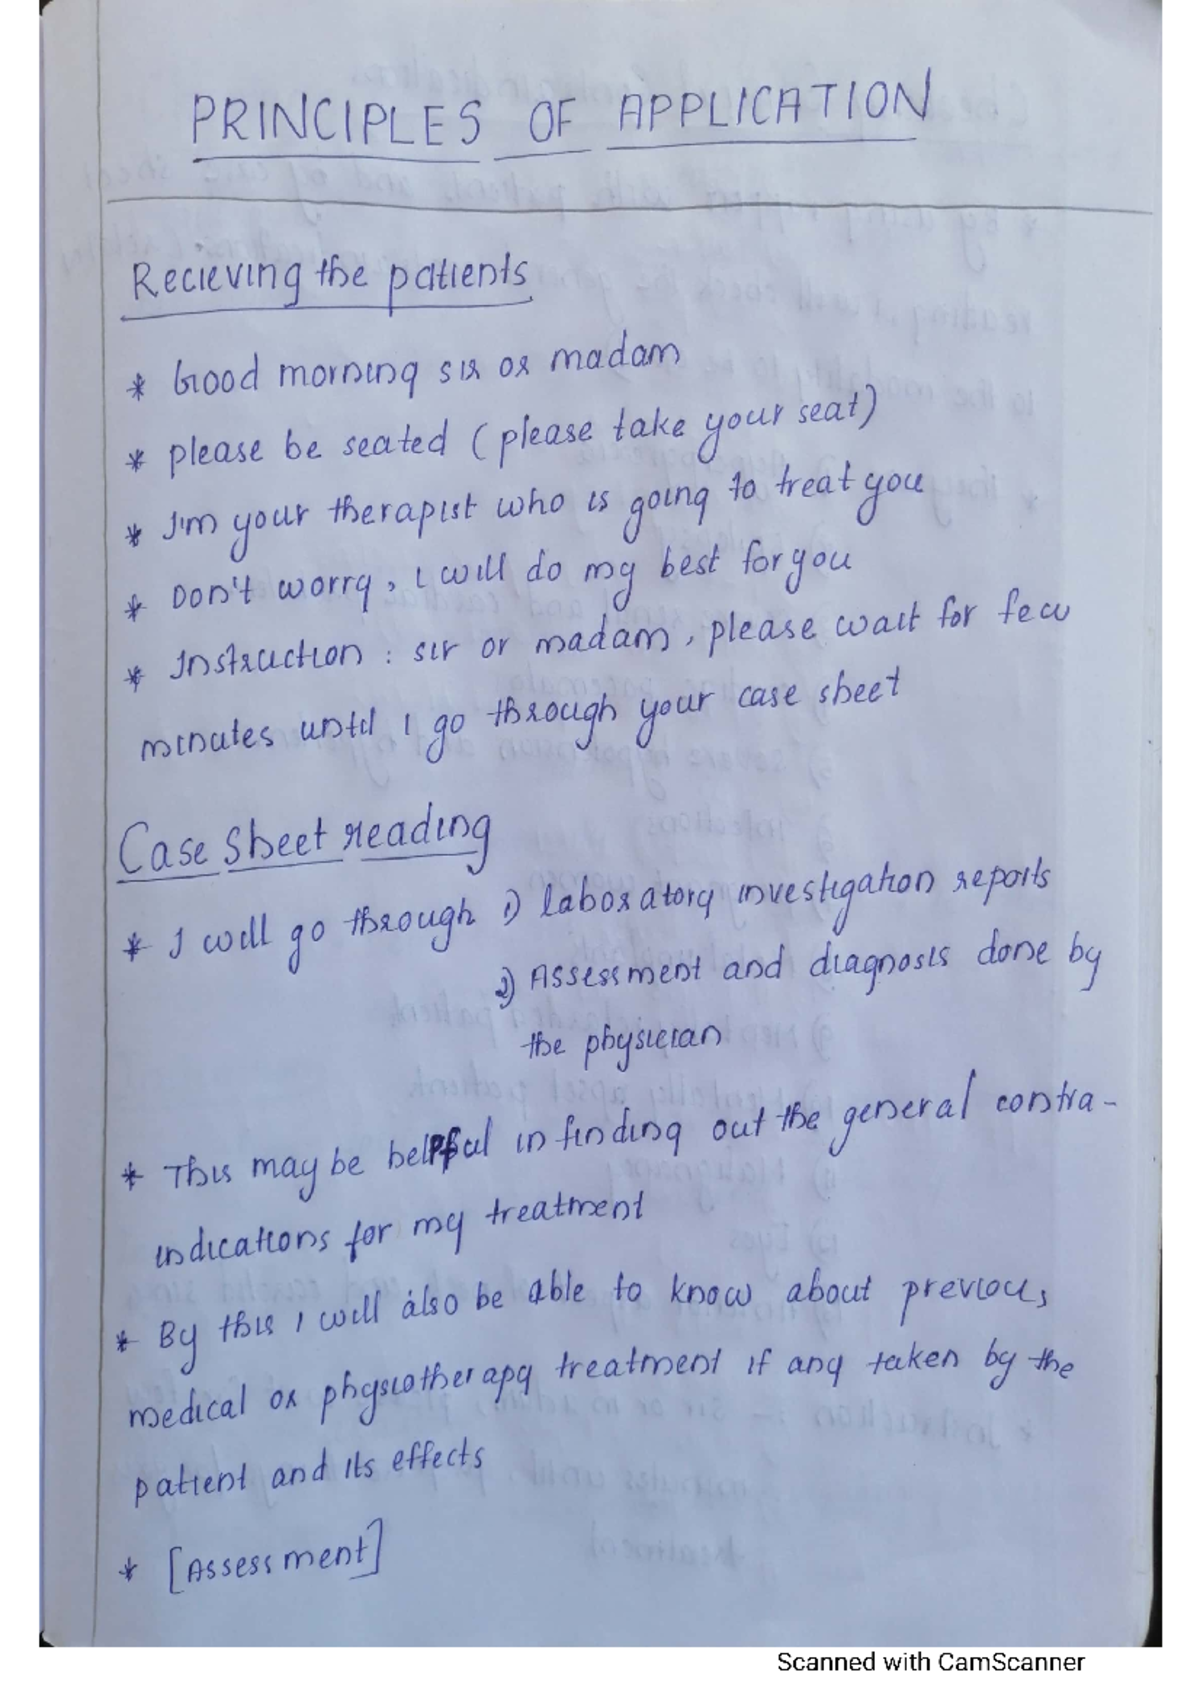 PRINCIPLES OF APPLICATION
Recieving the patients
* Good morning sir or madam
* please be seated (please take your seat)
* I'm your therapist who is going to treat you
* Don't worry, I will do my best for you
* Instruction : sir or madam, please wait for few
minutes until I go through your case sheet
Case sheet reading
* I will go through 1) laboratory investigation reports
2) Assessment and diagnosis done by
the physician
* This may be helpful in finding out the general contra-
indications for my treatment
* By this I will also be able to know about previous,
medical or physiotherapy treatment if any taken by the
patient and its effects
* [Assessment]
Scanned with CamScanner